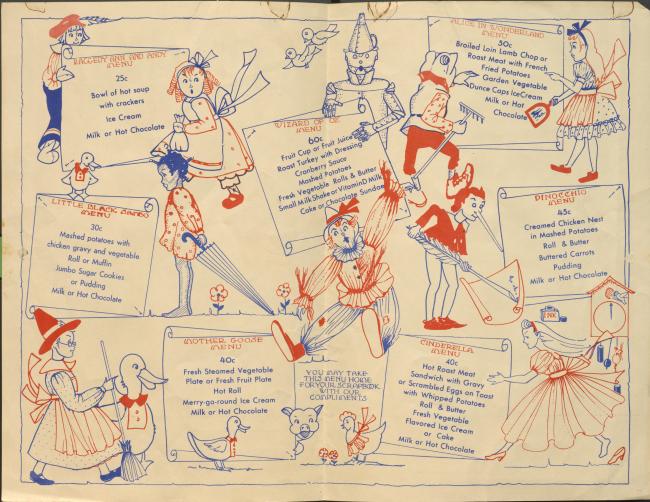 RAGGEDY ANN AND ANDY
MENU
25c
Bowl of hot soup
with crackers
Ice Cream
Milk or Hot Chocolate
WIZARD OF OZ
MENU
60c
Fruit Cup or Fruit Juice
Roast Turkey with Dressing
Cranberry Sauce
Mashed Potatoes
Fresh Vegetable Rolls & Butter
Small Milk Shake or Vitamin D Milk
Cake or Chocolate Sundae
ALICE IN WONDERLAND
MENU
50c
Broiled Loin Lamb Chop or
Roast Meat with French
Fried Potatoes
Garden Vegetable
Dunce Caps Ice Cream
Milk or Hot
Chocolate
LITTLE BLACK SAMBO
MENU
30c
Mashed potatoes with
chicken gravy and vegetable
Roll or Muffin
Jumbo Sugar Cookies
or Pudding
Milk or Hot Chocolate
PINOCCHIO
MENU
45c
Creamed Chicken Nest
in Mashed Potatoes
Roll & Butter
Buttered Carrots
Pudding
Milk or Hot Chocolate
INK
MOTHER GOOSE
MENU
40c
Fresh Steamed Vegetable
Plate or Fresh Fruit Plate
Hot Roll
Merry-go-round Ice Cream
Milk or Hot Chocolate
YOU MAY TAKE
THIS MENU HOME
FOR YOUR SCRAPBOOK
WITH OUR
COMPLIMENTS
CINDERELLA
MENU
40c
Hot Roast Meat
Sandwich with Gravy
or Scrambled Eggs on Toast
with Whipped Potatoes
Roll & Butter
Fresh Vegetable
Flavored Ice Cream
or Cake
Milk or Hot Chocolate